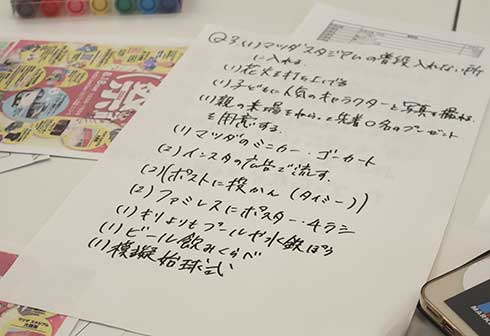 Q3(1)マツダスタジアムの普段入れない所
に入れる。
(1)花火を打ち上げる
(1)子どもに人気のキャラクターと写真を撮れる
(1)親の来場をねらって先着〇名のプレゼント
を用意する。
(1)マツダのミニカー・ゴーカート
(2)インスタの広告で流す。
(2)(ポストに投かん(タイミー))
(2)ファミレスにポスター・チラシ
(1)きりよりもプールや水鉄ぽう
(1)ビール飲みくらべ
(1)模擬始球式
祭
MARK